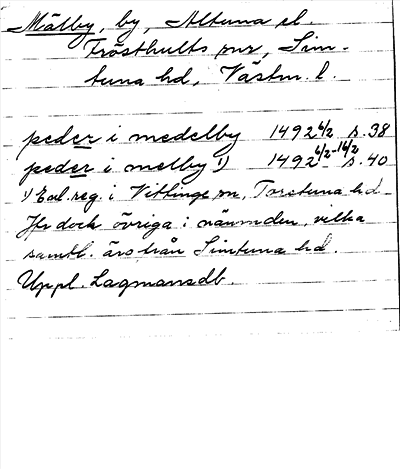 Mälby, by, Altuna el.
Frösthults snr, Sim-
tuna hd, Västm. l.
peder i medelby 1492 6/2 s. 38
peder i melby 1) 1492 6/2-16/2 s. 40
1) Enl. reg. i Vittinge sn, Torstuna hd.
Jfr dock övriga i nämnden, vilka
samtl. äro från Simtuna hd.
Uppl. Lagmansdb.